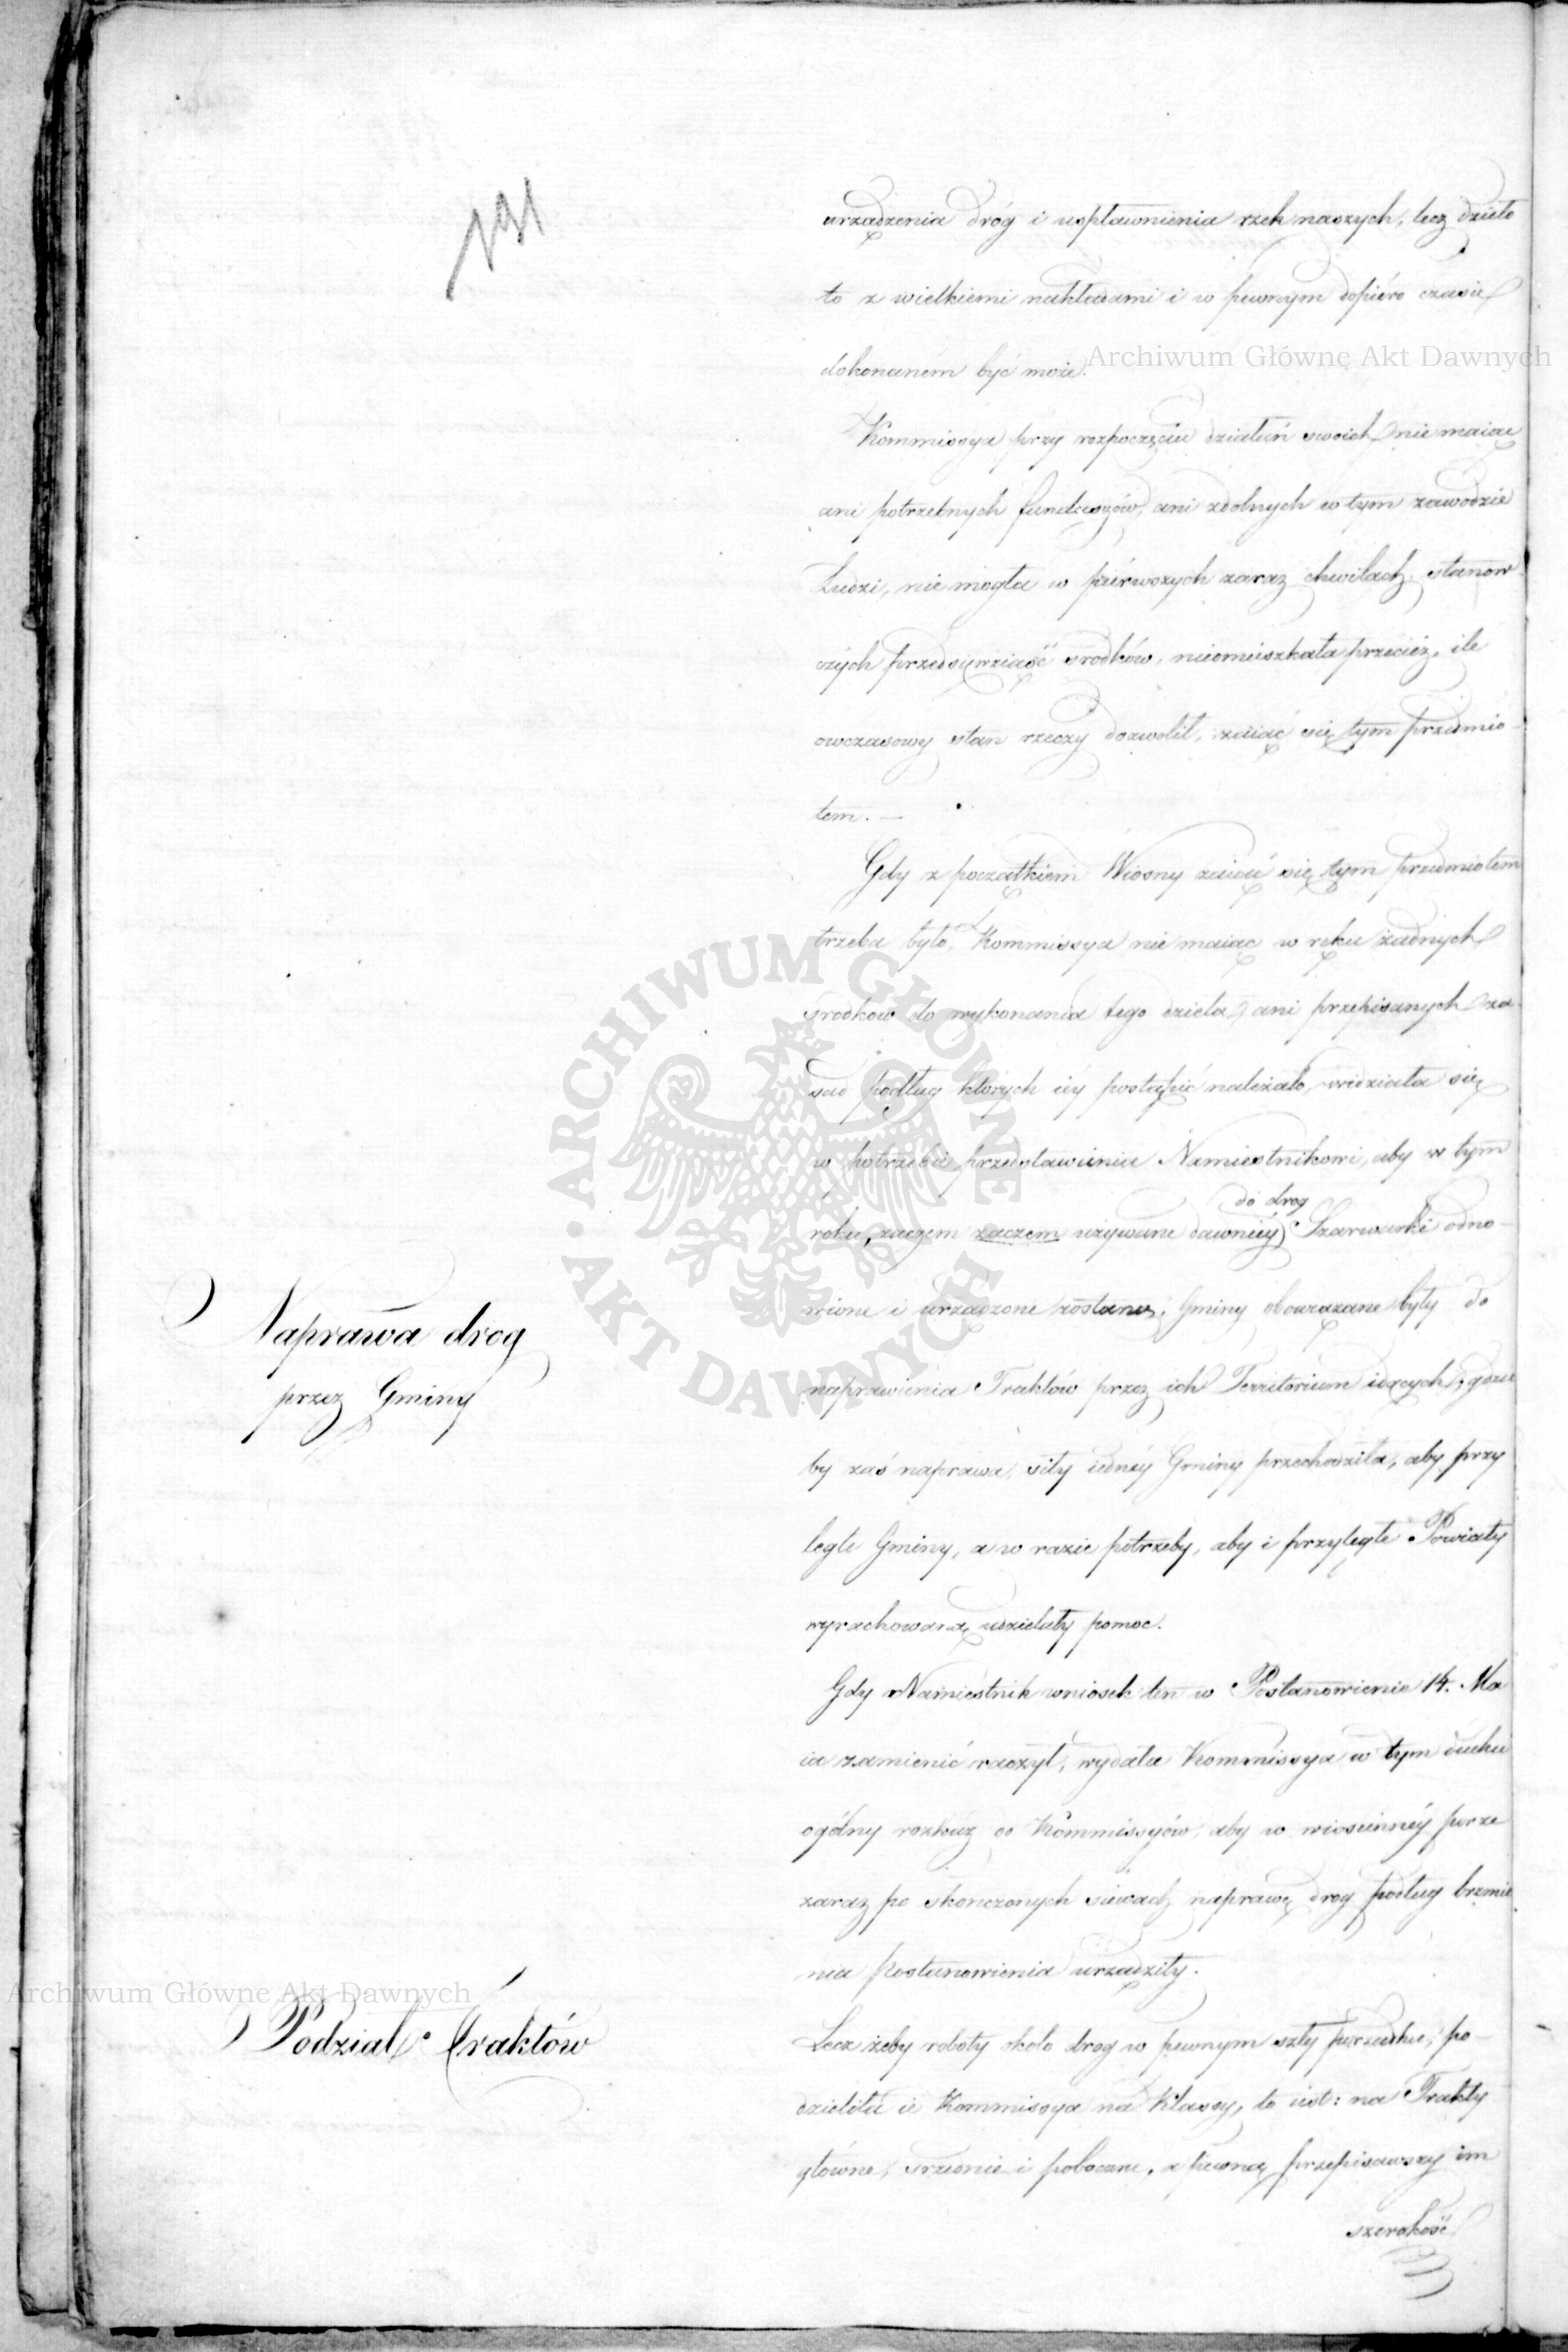 191
urządzenia dróg i uspławnienia rzek naszych, lecz dzieło
to z wielkiemi nakładami i w pewnym dopiéro czasie
dokonaném być może.
Archiwum Główne Akt Dawnych
Kommissya przy rozpoczęciu działań swoich nie maiąc
ani potrzebnych funduszów, ani zdolnych w tym zawodzie
Ludzi, nie mogła w piérwszych zaraz chwilach stanow-
czych przedsięwziąść srodków, nieomieszkała przecież, ile
owczasowy stan rzeczy dozwolił, zaiąć się tym przedmio-
tem. —
Gdy z początkiem Wiosny zaiąć się tym przedmiotem
trzeba było, Kommissya nie maiąc w ręku żadnych
srodków do wykonania tego dzieła, ani przepisanych za-
sad podług których iéy postąpić należało, widziała się
w potrzebie przedstawienia Namiestnikowi, aby w tym
do drog
roku, zaczem zaczem używane dawniéy Szarwarki odno-
wione i urządzone zostały. Gminy obowiązane były do
naprawienia Traktów przez ich Territorium idących, gdzie
by zaś naprawa, siły iednéy Gminy przechodziła, aby przy
legle Gminy, a w razie potrzeby, aby i przyległe Powiaty
wyrachowaną udzielały pomoc.
Gdy Namiestnik wniosek ten w Postanowienie 14. Ma
ia zamienić raczył, wydała Kommissya w tym duchu
ogólny rozkaz do Kommissyów, aby w wiosiennéy porze
zaraz po skonczonych siewach naprawę drog podług brzmie
nia postanowienia urządziły.
Lecz żeby roboty około drog w pewnym szły porządku, po-
dzieliła ie Kommissya na Klassy, to iest: na Trakty
główne, srzednie i poboczne, a pewną przepisawszy im
szerokość
Naprawa drog
przez Gminy
Archiwum Główne Akt Dawnych
Podział Traktów
ARCHIWUM GŁÓWNE AKT DAWNYCH